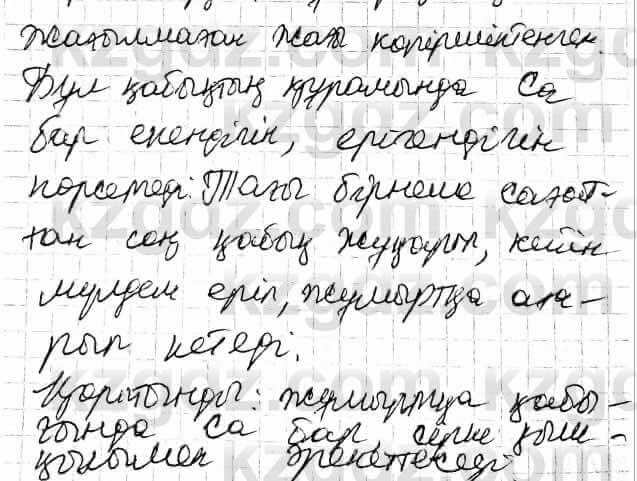 жағылмаған жағы көпіршіктенген.
Бұл қабықтың құрамында Ca
бар екендігін, ерігендігін
көрсетеді. Тағы бірнеше сағат-
тан соң қабық жұқарып, кейін
мүлдем еріп, жұмыртқа аға-
рып кетеді.
Қорытынды: жұмыртқа қабы-
ғында Ca бар, сірке қыш-
қылымен әрекеттеседі